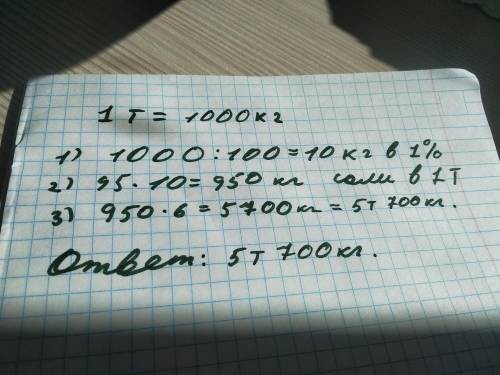 1 т = 1000кг
1) 1000:100=10 кг в 1%
2) 95·10=950 кг соли в 1т
3) 950·6=5700кг=5т 700кг.
Ответ: 5т 700кг.